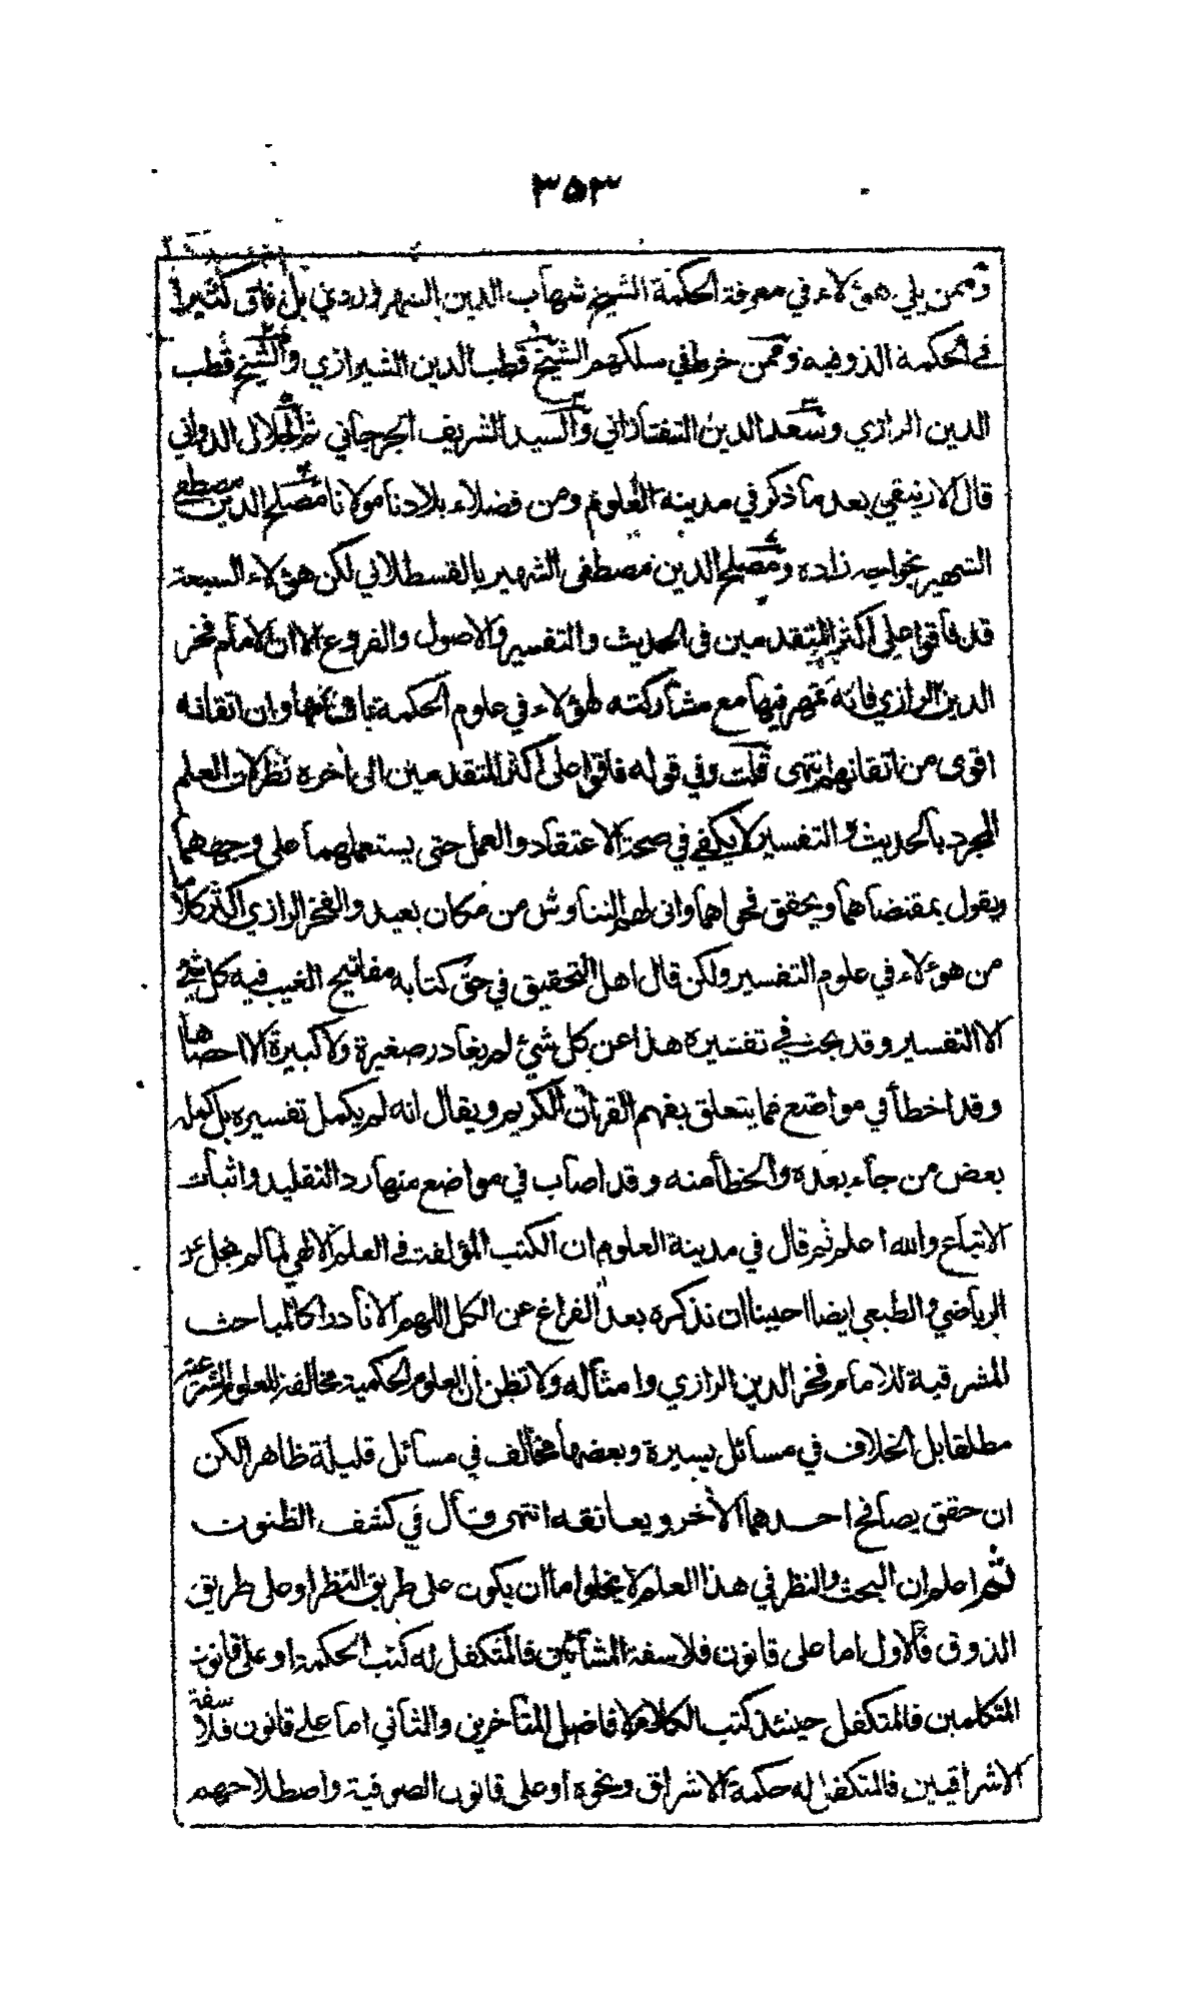 ٣٥٣
وممن يلي هؤلاء في معرفة الحكمة الشيخ شهاب الدين السهروردي بل فاق كثيرا
في الحكمة الذوقية وممن خرط في سلكهم الشيخ قطب الدين الشيرازي والشيخ قطب
الدين الرازي وسعد الدين التفتازاني والسيد الشريف الجرجاني ثم الجلال الدواني
قال الارنيقي بعد ما ذكر في مدينة العلوم ومن فضلاء بلادنا مولانا مصلح الدين مصطفى
الشهير بخواجه زاده ومصلح الدين مصطفى الشهير بالقسطلاني لكن هؤلاء السبعة
قد فاقوا على اكثر المتقدمين في الحديث والتفسير والاصول والفروع الا ان الامام فخر
الدين الرازي فانه تمهر فيها مع مشاركته لهؤلاء في علوم الحكمة باقسامها وان اتقانه
اقوى من اتقانهم انتهى قلت وفي قوله فاقوا على اكثر المتقدمين الى اخره نظر لان العلم
المجرد بالحديث والتفسير لا يكفي في صحة الاعتقاد والعمل حتى يستعملهما على وجههما
ويقول بمقتضاهما ويحقق فحواهما وانى لهم التناوش من مكان بعيد والفخر الرازي اكثر كلاما
من هؤلاء في علوم التفسير ولكن قال اهل التحقيق في حق كتابه مفاتيح الغيب فيه كل شيء
الا التفسير وقد بحث في تفسيره هذا عن كل شيئ لم يغادر صغيرة ولا كبيرة الا احصاها
وقد اخطأ في مواضع مما يتعلق بفهم القرآن الكريم ويقال انه لم يكمل تفسيره بل كمله
بعض من جاء بعده والخطأ منه وقد اصاب في مواضع منها رد التقليد واثبات
الاتباع والله اعلم ثم قال في مدينة العلوم ان الكتب المؤلفة في العلم الالهي لما لم يخل عن
الرياضي والطبعي ايضا احببنا ان نذكره بعد الفراغ عن الكل اللهم الا نادرا كالمباحث
المشرقية للامام فخر الدين الرازي وامثاله ولا تظن ان العلوم الحكمية مخالفة للعلوم الشرعية
مطلقا بل الخلاف في مسائل يسيرة وبعضها مخالف في مسائل قليلة ظاهرا لكن
ان حقق يصافح احدهما الأخر ويعانقه انتهى وقال في كشف الظنون
ثم اعلم ان البحث والنظر في هذا العلم لا يخلوا ما ان يكون على طريق النظر او على طريق
الذوق فالاول اما على قانون فلاسفة المشائين فالمتكفل له كتب الحكمة او على قانون
المتكلمين فالمتكفل حينئذ كتب الكلام لافاضل المتأخرين والثاني اما على قانون فلاسفة
الاشراقيين فالمتكفل له حكمة الاشراق ونحوه او على قانون الصوفية واصطلاحهم